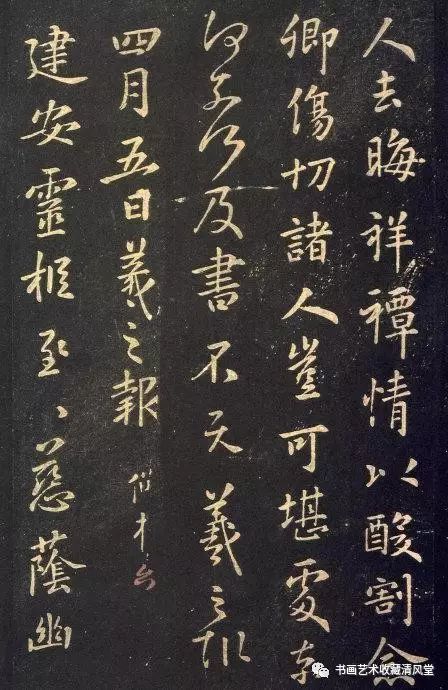 人去晦祥禫情以酸割念
卿傷切諸人豈可堪處奈
何奈何及書不次羲之報
四月五日羲之報
建安靈柩至〻慈蔭幽
书画艺术收藏清风堂